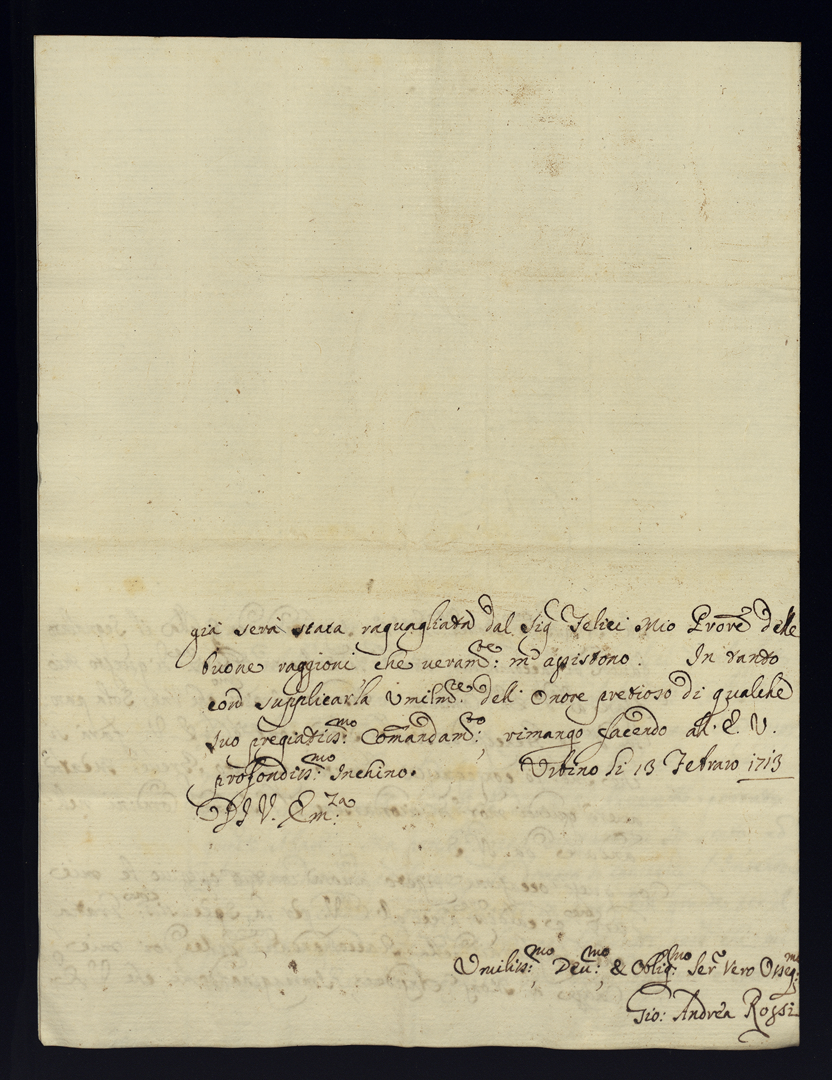 già serà stata raguagliata dal Sig Felici Mio Provre delle
buone raggioni che veramte: mi assistono. In tanto
con supplicarla Umilmte dell' Onore pretioso di qualche
suo pregiatissmo: Comandamto:, rimango facendo all' E. V.
profondissmo: Inchino. Urbino li 13 Febraro 1713
Di V. Emza:
Umilissmo: Devmo: & Obligmo: Serre Vero Osseqmo:
Gio: Andrea Rossi